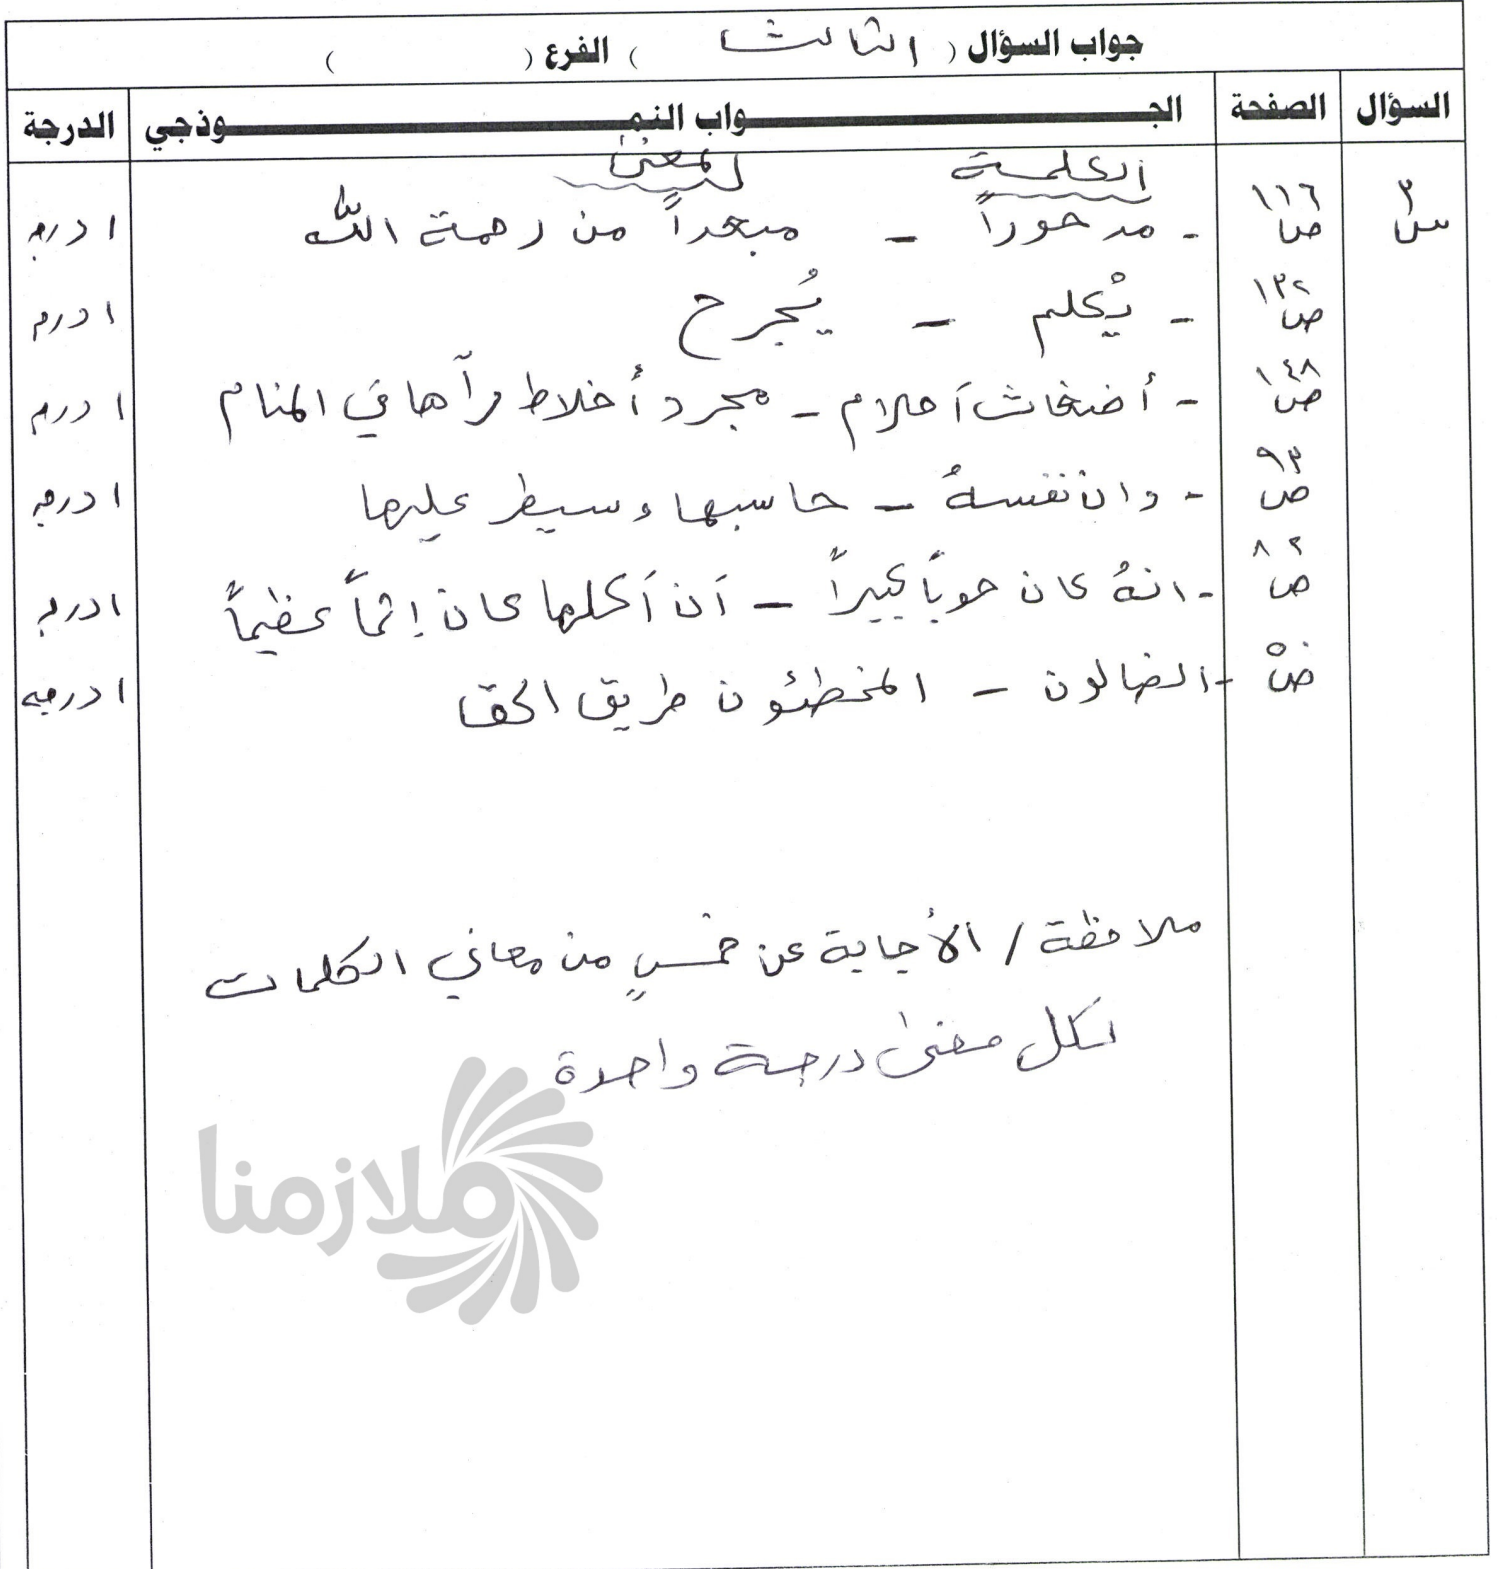 جواب السؤال ( الثالث ) الفرع ( )
السؤال الصفحة الجـــواب النمـــوذجي الدرجة
الكلمة المعنى
س٣ ص١١٦ - مدحوراً - مبعداً من رحمة الله ١ درجة
ص١٣٢ - يُكلم - يُجرح ١ درجة
ص١٤٨ - أضغاث أحلام - مجرد أخلاط رآها في المنام ١ درجة
ص٩٣ - دان نفسهُ - حاسبها وسيطر عليها ١ درجة
ص٨٢ - انهُ كان حوباً كبيراً - أن أكلها كان إثماً عظيماً ١ درجة
ص٥ - الضالون - المخطئون طريق الحق ١ درجة
ملاحظة / الأجابة عن خمسٍ من معاني الكلمات
لكل معنى درجة واحدة
ملازمنا